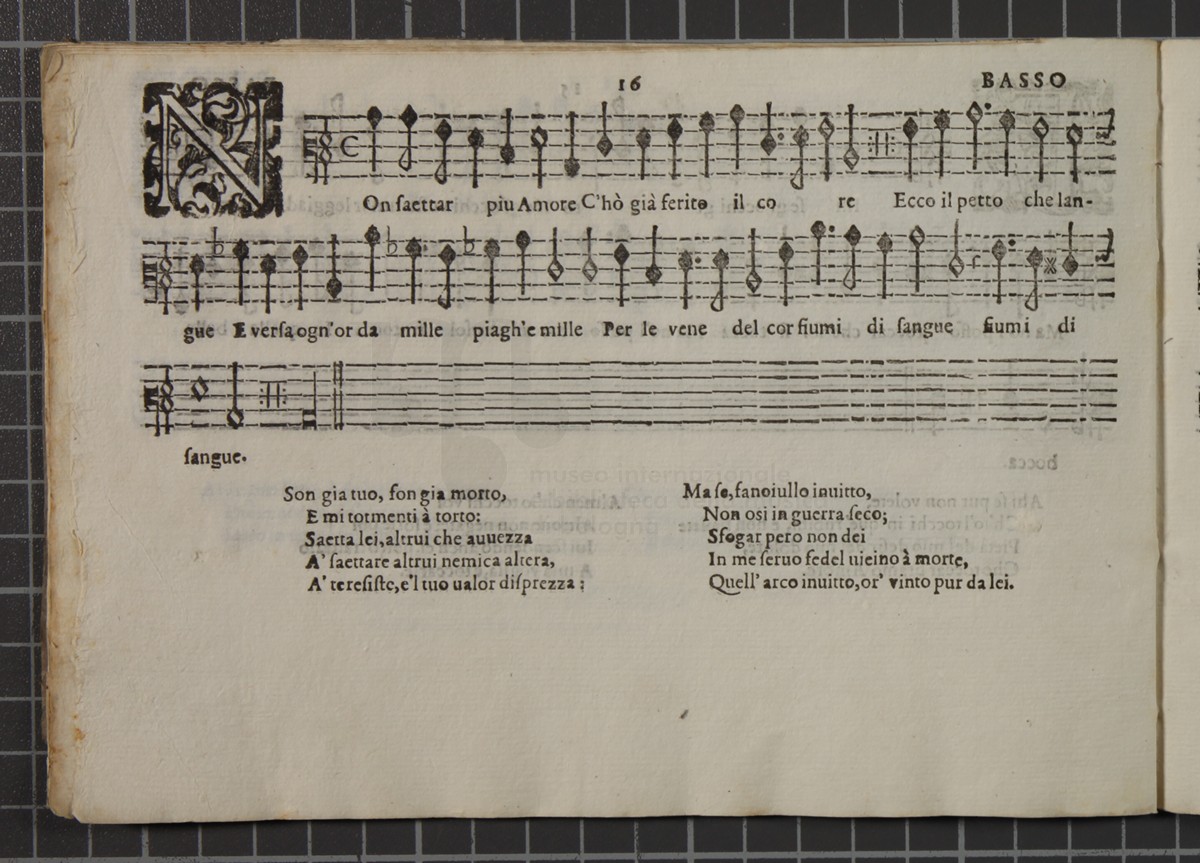 16
BASSO
NOn ſaettar piu Amore C'hò già ferito il co re Ecco il petto che lan-
gue E verſa ogn'or da mille piagh'e mille Per le vene del cor fiumi di ſangue fiumi di
ſangue.
Son gia tuo, ſon gia morto,
E mi tormenti à torto:
Saetta lei, altrui che auuezza
A' ſaettare altrui nemica altera,
A' te reſiſte, e'l tuo ualor diſprezza:
Ma ſe, fanoiullo inuitto,
Non osi in guerra ſeco;
Sfogar pero non dei
In me ſeruo fedel uieino à morte,
Quell' arco inuitto, or' vinto pur da lei.
museo internazionale